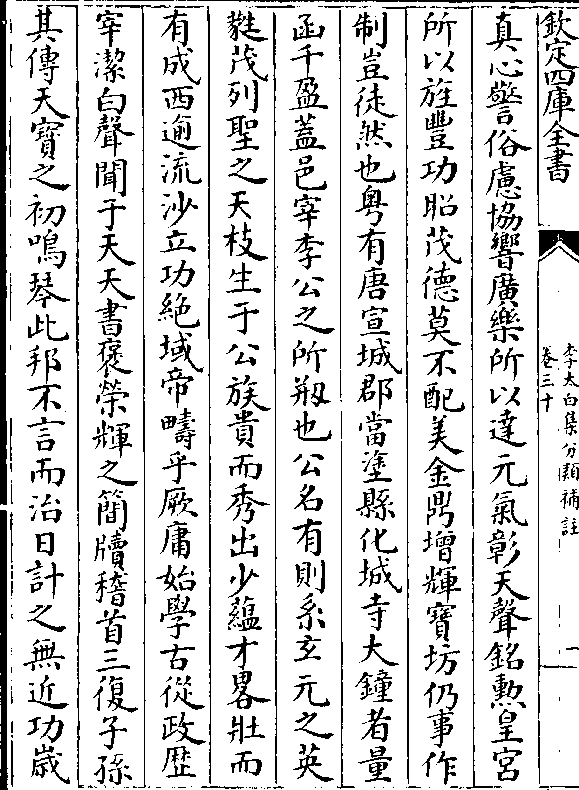 欽定四庫全書
李太白集分類補註
卷三十
一
真心警俗慮協響廣樂所以達元氣彰天聲銘勲皇宮
所以旌豐功昭茂德莫不配美金鼎增輝寶坊仍事作
制豈徒然也粤有唐宣城郡當塗縣化城寺大鐘者量
函千盈蓋邑宰李公之所剏也公名有則系玄元之英
蕤茂列聖之天枝生于公族貴而秀出少藴才畧壯而
有成西逾流沙立功絶域帝疇乎厥庸始學古從政歴
宰潔白聲聞于天天書褒榮輝之簡牘稽首三復子孫
其傳天寶之初鳴琴此邦不言而治日計之無近功歳